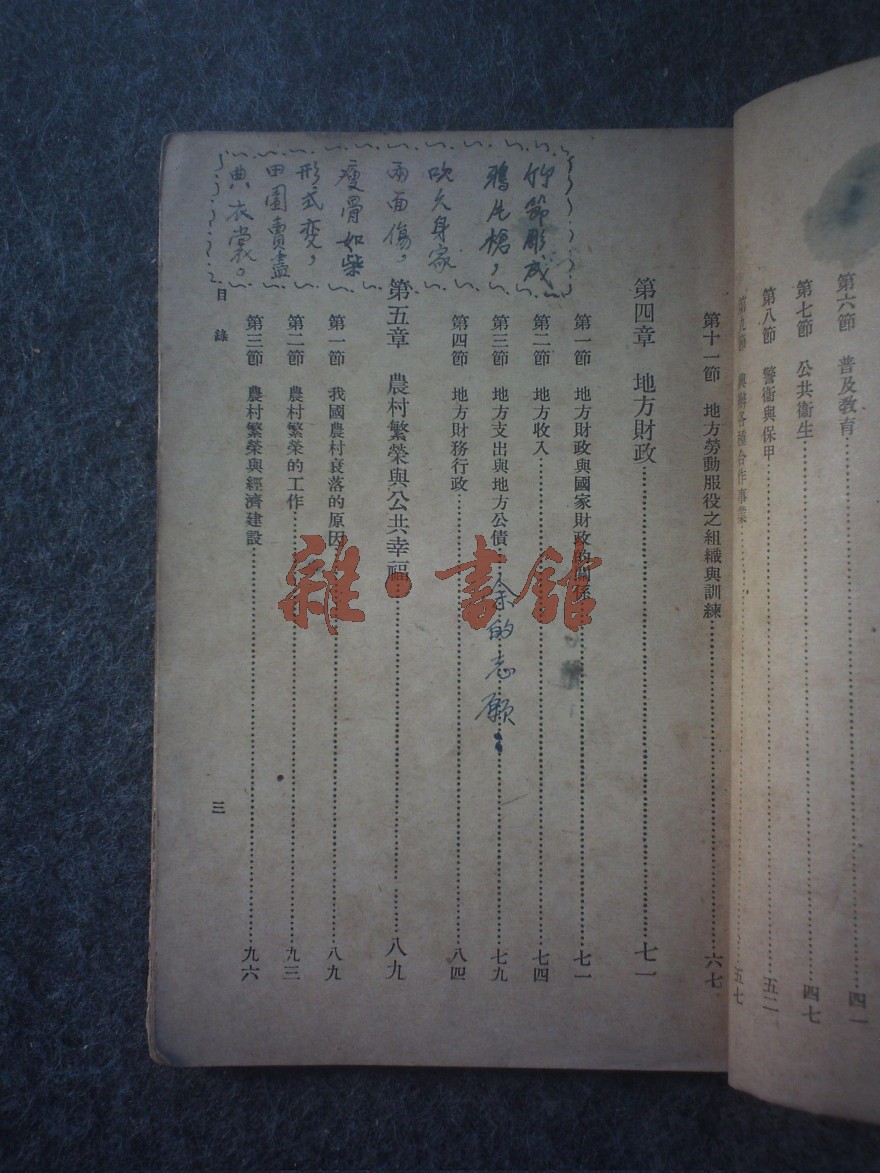 第六節　普及教育………四一
第七節　公共衞生………四七
第八節　警衞與保甲………五二
第九節　興辦各種合作事業………五七
第十一節　地方勞動服役之組織與訓練………六七
第四章　地方財政………七一
第一節　地方財政與國家財政的關係………七一
第二節　地方收入………七四
第三節　地方支出與地方公債………七九
第四節　地方財務行政………八四
第五章　農村繁榮與公共幸福………八九
第一節　我國農村衰落的原因………八九
第二節　農村繁榮的工作………九三
第三節　農村繁榮與經濟建設………九六
目錄
三
竹節彫成
鴉片槍，
吹久身家
兩面傷，
瘦骨如柴
形式變，
田園賣盡
典衣裳。
余的志願：
雜·書館